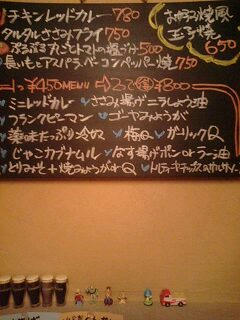 チキンレッドカレー 780
タルタルささみフライ 750
ぷるぷる丸ごとトマトの塩づけ 500
長いもとアスパラ、ベーコンペッパー焼 750
お好み焼風
玉子焼
650
1つ¥450MENU → 2つで ¥800
ミニレッドカレー
ささみ揚げニラしょう油
フランクピーマン
ゴーヤみょうが
薬味たっぷり冷奴
梅Q
ガーリックQ
じゃこカブナムル
なす揚げポン or ラー油
とりみそ+焼みょうがQ